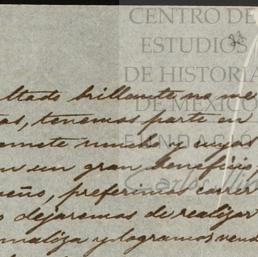 CENTRO DE
ESTUDIOS
DE HISTORIA
DE MEXICO
FUNDACIÓ
Carlos
ultado brillante no me
as, tenemos parte en
mucho y cuyos
un gran beneficio,
ueño, preferimos correr
o dejaremos de realizar
y logramos vend